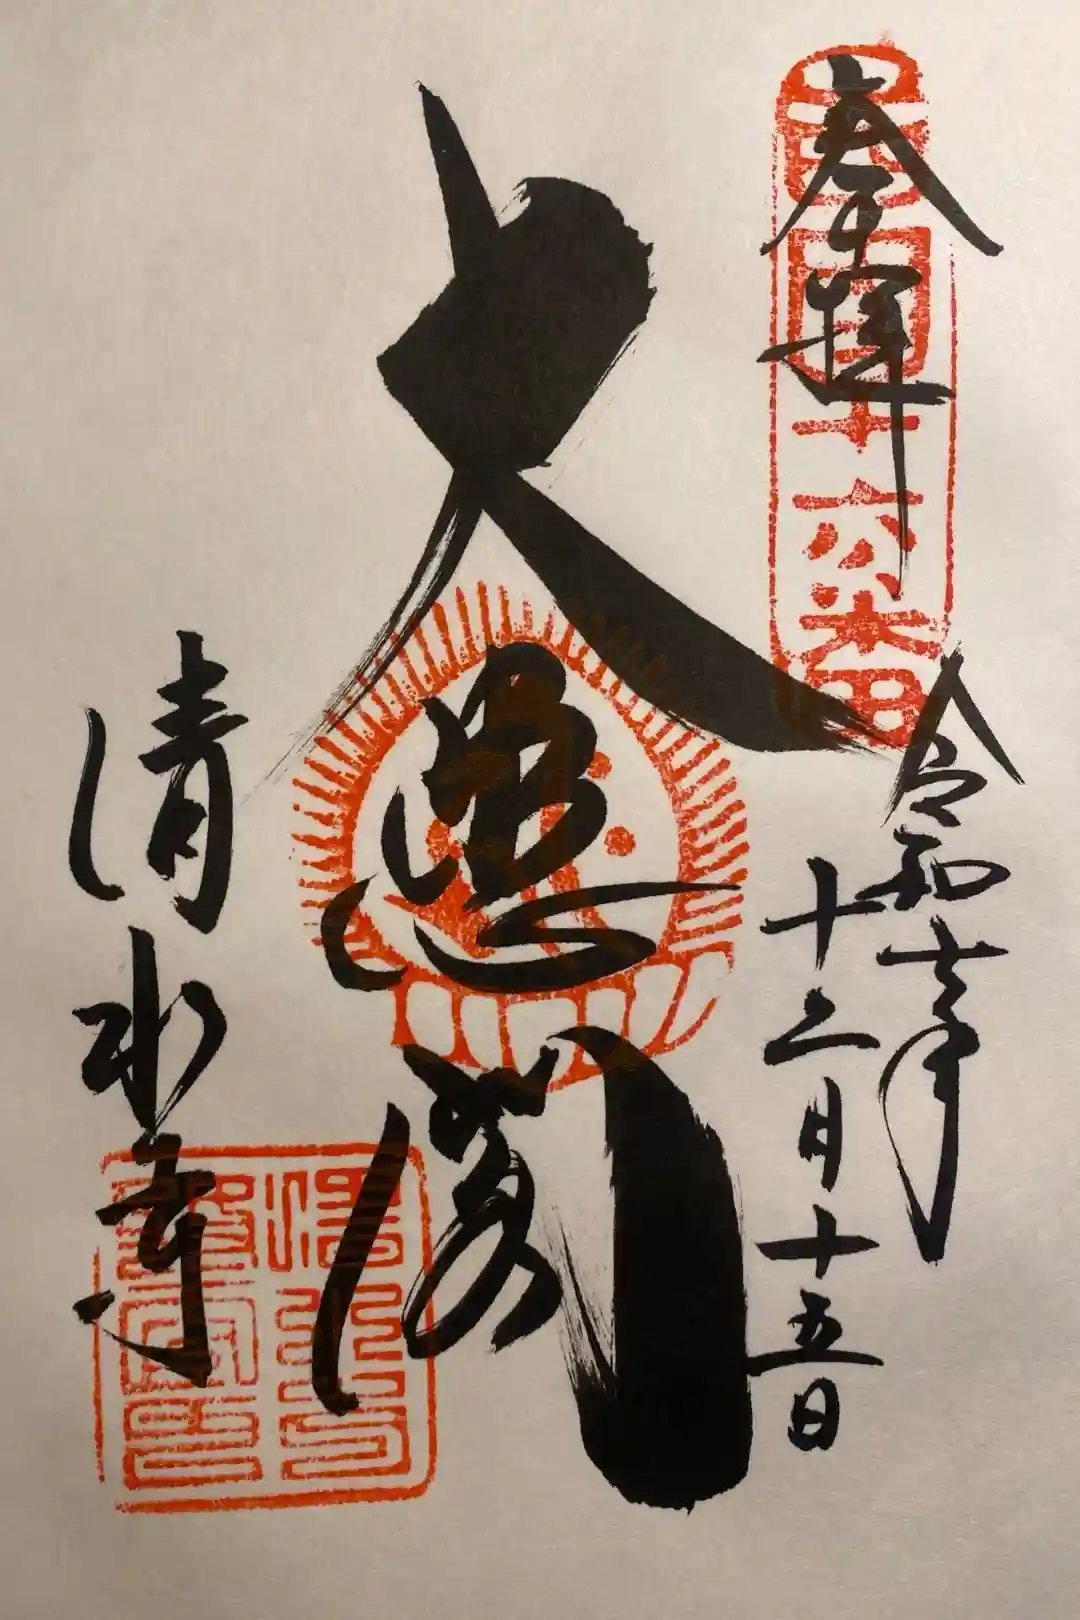 奉拝
令和七年
十二月十五日
大悲閣
清水寺
西国十六番